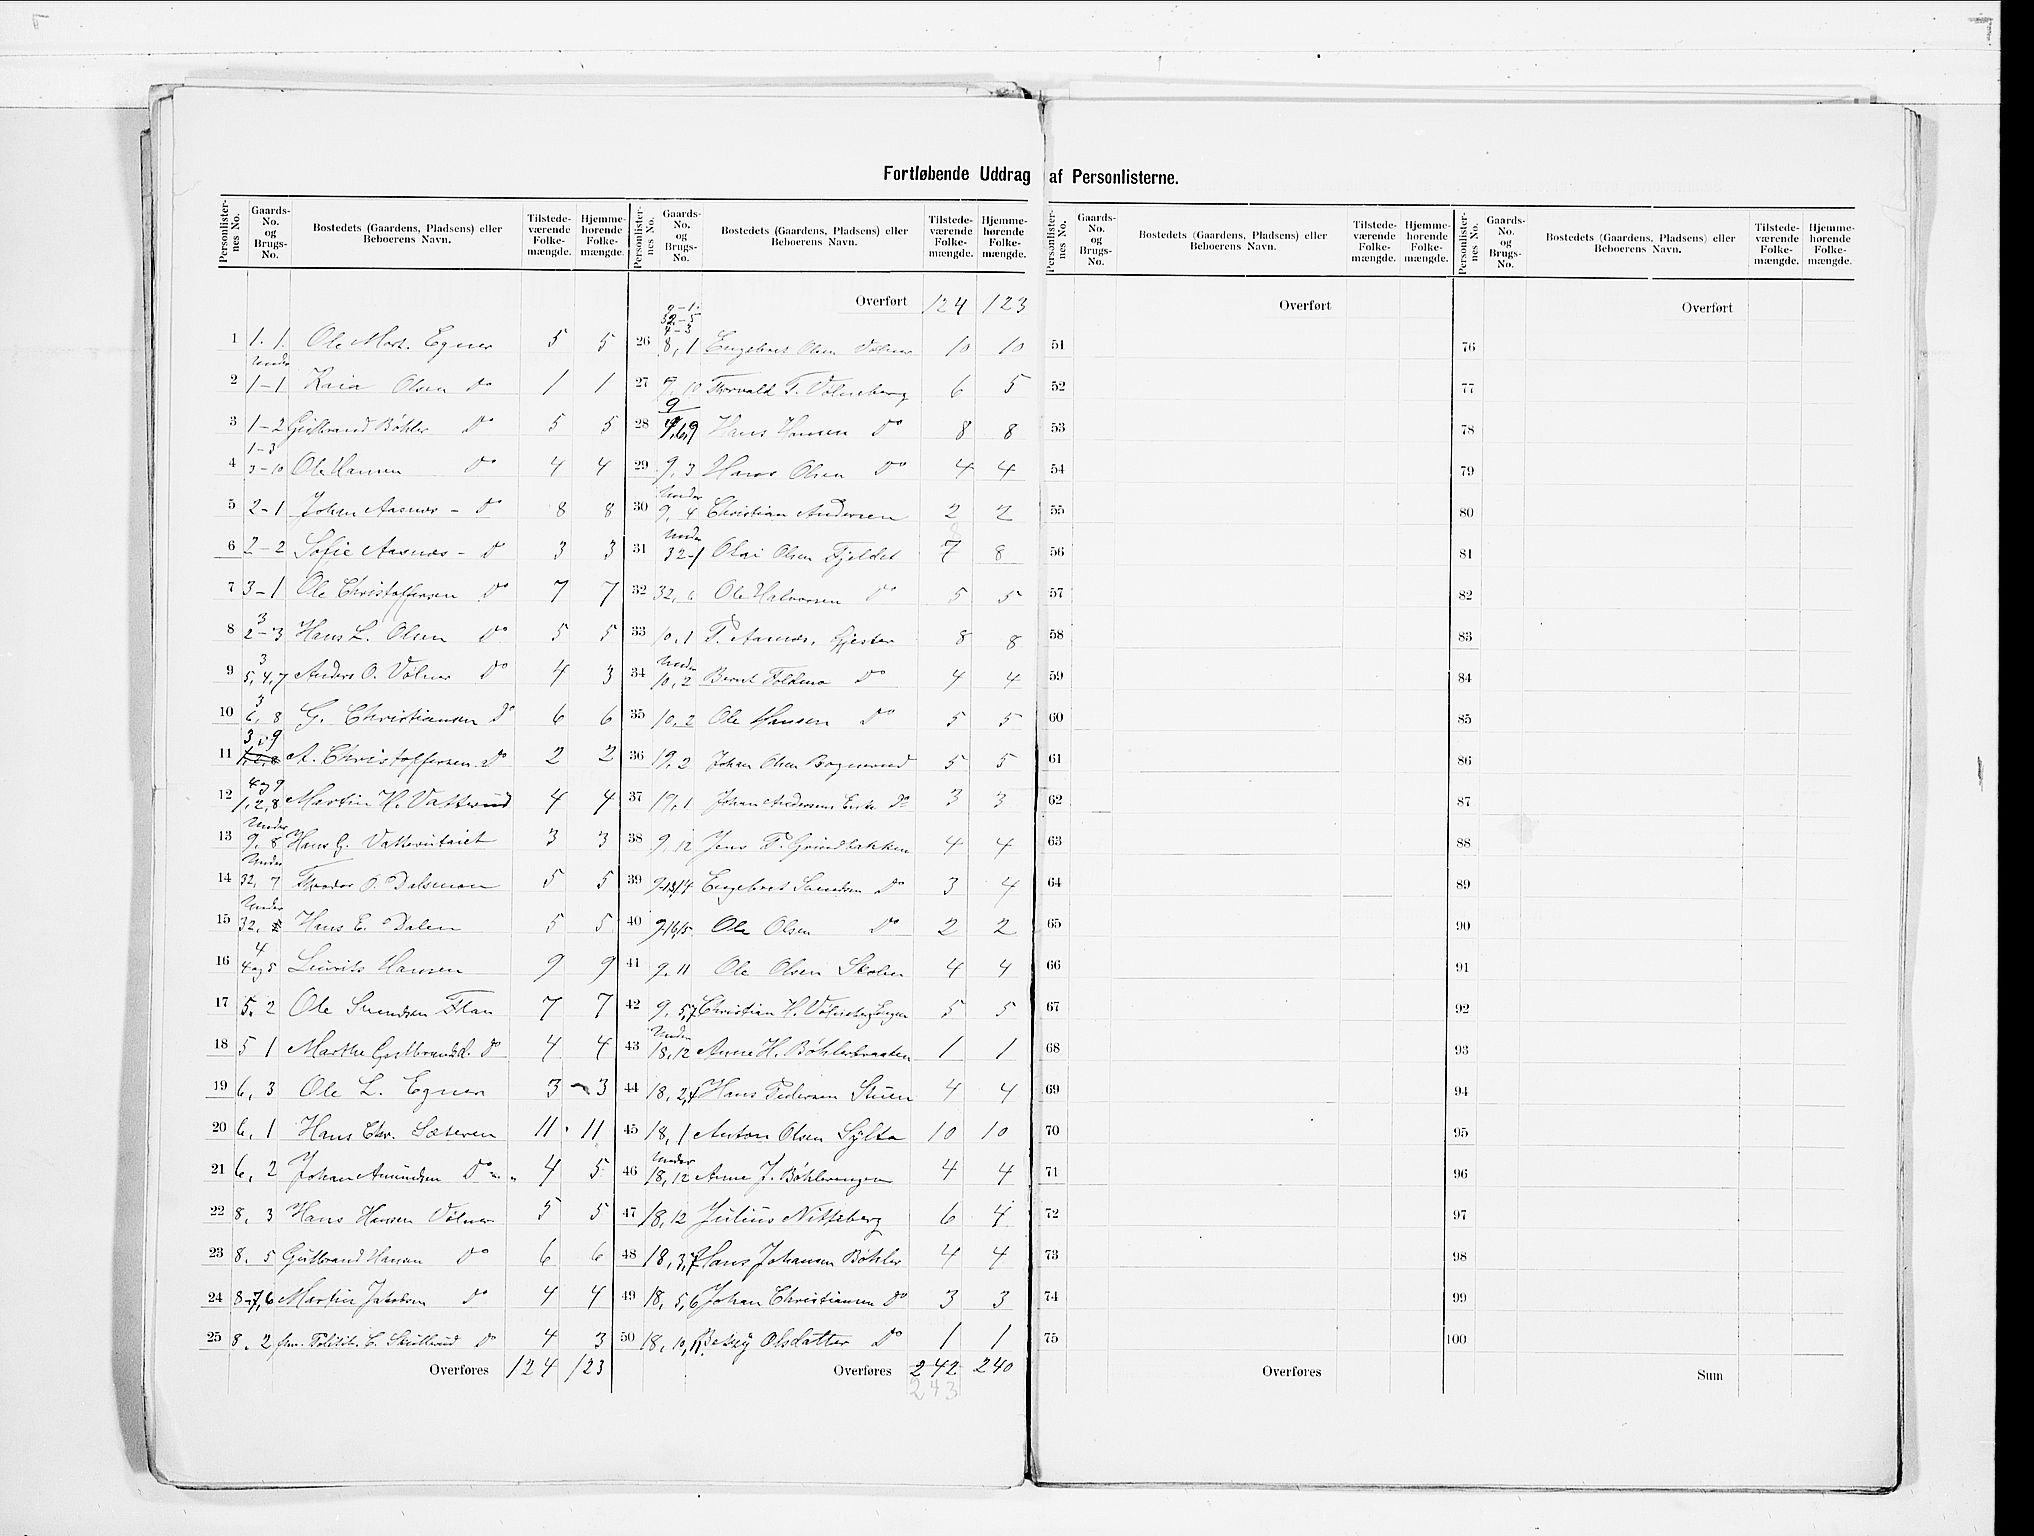 Fortløbende Uddrag af Personlisterne.
Personlister-nes No. | Gaards-No. og Brugs-No. | Bostedets (Gaardens, Pladsens) eller Beboerens Navn. | Tilstede-værende Folke-mængde. | Hjemme-hørende Folke-mængde.
1 | 1. 1. | Ole Mort. Egner | 5 | 5
2 | Under 1-1 | Kaia Olsen Do | 1 | 1
3 | 1-2 | Gulbrand Bøhler Do | 5 | 5
4 | 1-3 3-10 | Ole Hansen Do | 4 | 4
5 | 2-1 | Johan Aasnæs - Do | 8 | 8
6 | 2-2 | Sofie Aasnæs - Do | 3 | 3
7 | 3-1 | Ole Christoffersen Do | 7 | 7
8 | 3 2-3 | Hans L. Olsen Do | 5 | 5
9 | 3 5,4,7 | Anders O. Vølner Do | 4 | 3
10 | 3 6,8 | G. Christiansen Do | 6 | 6
11 | 3,9 | A. Christoffersen Do | 2 | 2
12 | 4og9 1,2,8 | Martin H. Vatterud | 4 | 4
13 | Under 9,8 | Hans G. | 3 | 3
14 | Under 32,7 | O. Dalsmoen | 5 | 5
15 | Under 32, | Hans E. Dalen | 5 | 5
16 | 4 4og5 | Laurits Hansen | 9 | 9
17 | 5.2 | Ole Svendsen Flan | 7 | 7
18 | 5 1 | Marthe Gulbrandsd. Do | 4 | 4
19 | 6, 3 | Ole L. Egner | 3 | 3
20 | 6, 1 | Hans Chr. Sæteren | 11 | 11
21 | 6, 2 | Johan Amundsen Do | 4 | 5
22 | 8, 3 | Hans Hansen Vølner | 5 | 5
23 | 8, 5 | Gulbrand Hansen Do | 6 | 6
24 | 8-7,6 | Martin Jakobsen Do | 4 | 4
25 | 8, 2 | Do | 4 | 3
Overføres | 124 | 123
Personlister-nes No. | Gaards-No. og Brugs-No. | Bostedets (Gaardens, Pladsens) eller Beboerens Navn. | Tilstede-værende Folke-mængde. | Hjemme-hørende Folke-mængde.
Overført | 124 | 123
26 | 9-1. 32-5 4-3 8,1 | Engebret Olsen Vølner | 10 | 10
27 | 9,10 | Thorvald T. Vølneberg | 6 | 5
28 | 9 | Hans Hansen Do | 8 | 8
29 | 9, 3 | Hans Olsen Do | 4 | 4
30 | Under 9, 4 | Christian Andersen | 2 | 2
31 | Under 32-1 | Olai Olsen Fjeldet | 7 | 8
32 | 32, | Ole Halvorsen Do | 5 | 5
33 | 10,1 | P. Aasnæs, | 8 | 8
34 | Under 10,2 | Bernt Foldmo Do | 4 | 4
35 | 10,2 | Ole Hansen Do | 5 | 5
36 | 19,2 | Johan Olsen | 5 | 5
37 | 19,1 | Johan Andersens Enke Do | 3 | 3
38 | 9,12 | Jens P. Grindbakken | 4 | 4
39 | 9-13,14 | Engebret Svendsen Do | 3 | 4
40 | 9-16,15 | Ole Olsen Do | 2 | 2
41 | 9,11 | Ole Olsen | 4 | 4
42 | 9,5,7 | Christian H. | 5 | 5
43 | Under 18,12 | Anne H. Bøhlerbraaten | 1 | 1
44 | 18,2,4 | Hans Pedersen Stuen | 4 | 4
45 | 18,1 | Anton Olsen Sylta | 10 | 10
46 | Under 18,12 | Anne J. Bøhlerengen | 4 | 4
47 | 18,12 | Julius Nitteberg | 6 | 4
48 | 18,3,7 | Hans Johansen Bøhler | 4 | 4
49 | 18,5,6 | Johan Christiansen Do | 3 | 3
50 | 18,10,11 | Betsy Olsdatter Do | 1 | 1
Overføres | 242 | 240
243
Personlister-nes No. | Gaards-No. og Brugs-No. | Bostedets (Gaardens, Pladsens) eller Beboerens Navn. | Tilstede-værende Folke-mængde. | Hjemme-hørende Folke-mængde.
Overført
51
52
53
54
55
56
57
58
59
60
61
62
63
64
65
66
67
68
69
70
71
72
73
74
75
Overføres
Personlister-nes No. | Gaards-No. og Brugs-No. | Bostedets (Gaardens, Pladsens) eller Beboerens Navn. | Tilstede-værende Folke-mængde. | Hjemme-hørende Folke-mængde.
Overført
76
77
78
79
80
81
82
83
84
85
86
87
88
89
90
91
92
93
94
95
96
97
98
99
100
Sum